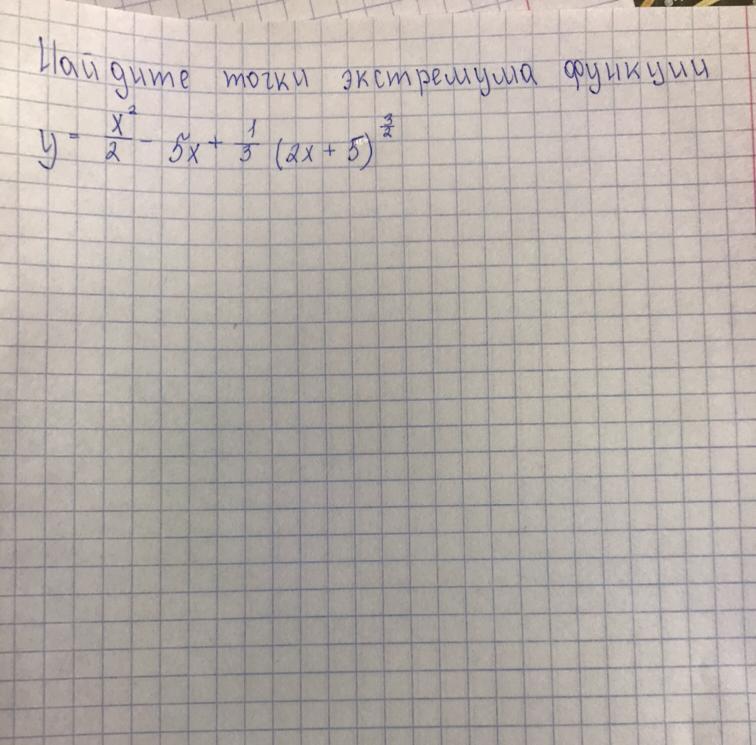 Найдите точки экстремума функции
y = x²/2 - 5x + 1/3 (2x + 5)^(3/2)